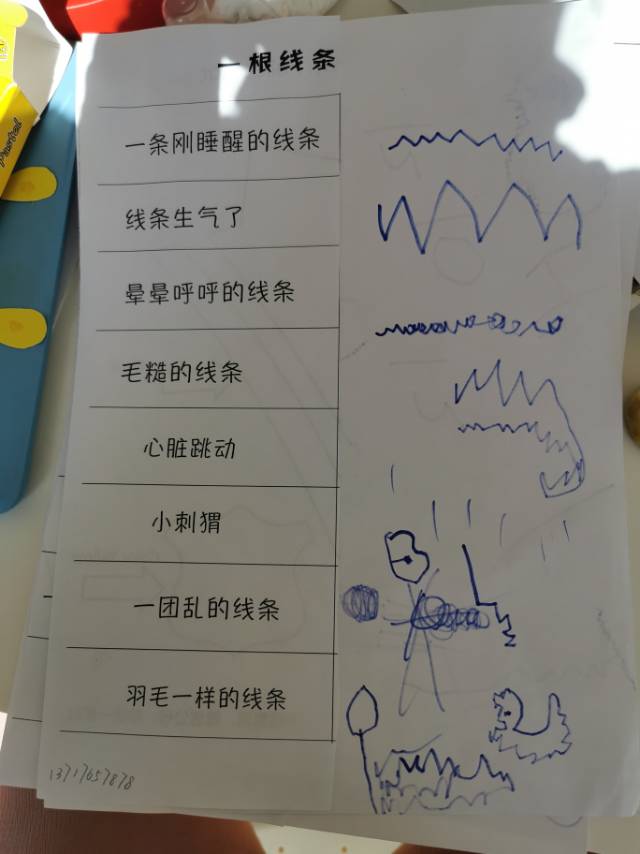 一根线条
一条刚睡醒的线条
线条生气了
晕晕呼呼的线条
毛糙的线条
心脏跳动
小刺猬
一团乱的线条
羽毛一样的线条
13717657878
Pastel